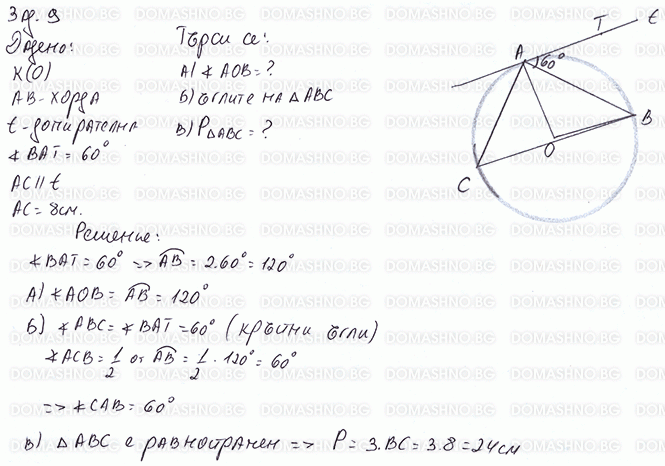 Зад. 9
Дадено:
K(O)
AB - хорда
t - допирателна
∢BAT = 60°
AC || t
AC = 8см.
Търси се:
А) ∢AOB = ?
Б) ъглите на △ABC
В) P△ABC = ?
A
60°
T
t
B
O
C
Решение:
∢BAT = 60° => AB = 2.60° = 120°
А) ∢AOB = AB = 120°
Б) ∢ABC = ∢BAT = 60° (кръстни ъгли)
∢ACB = 1/2 от AB = 1/2 . 120° = 60°
=> ∢CAB = 60°
В) △ABC е равностранен => P = 3.BC = 3.8 = 24см
DOMASHNO.BG